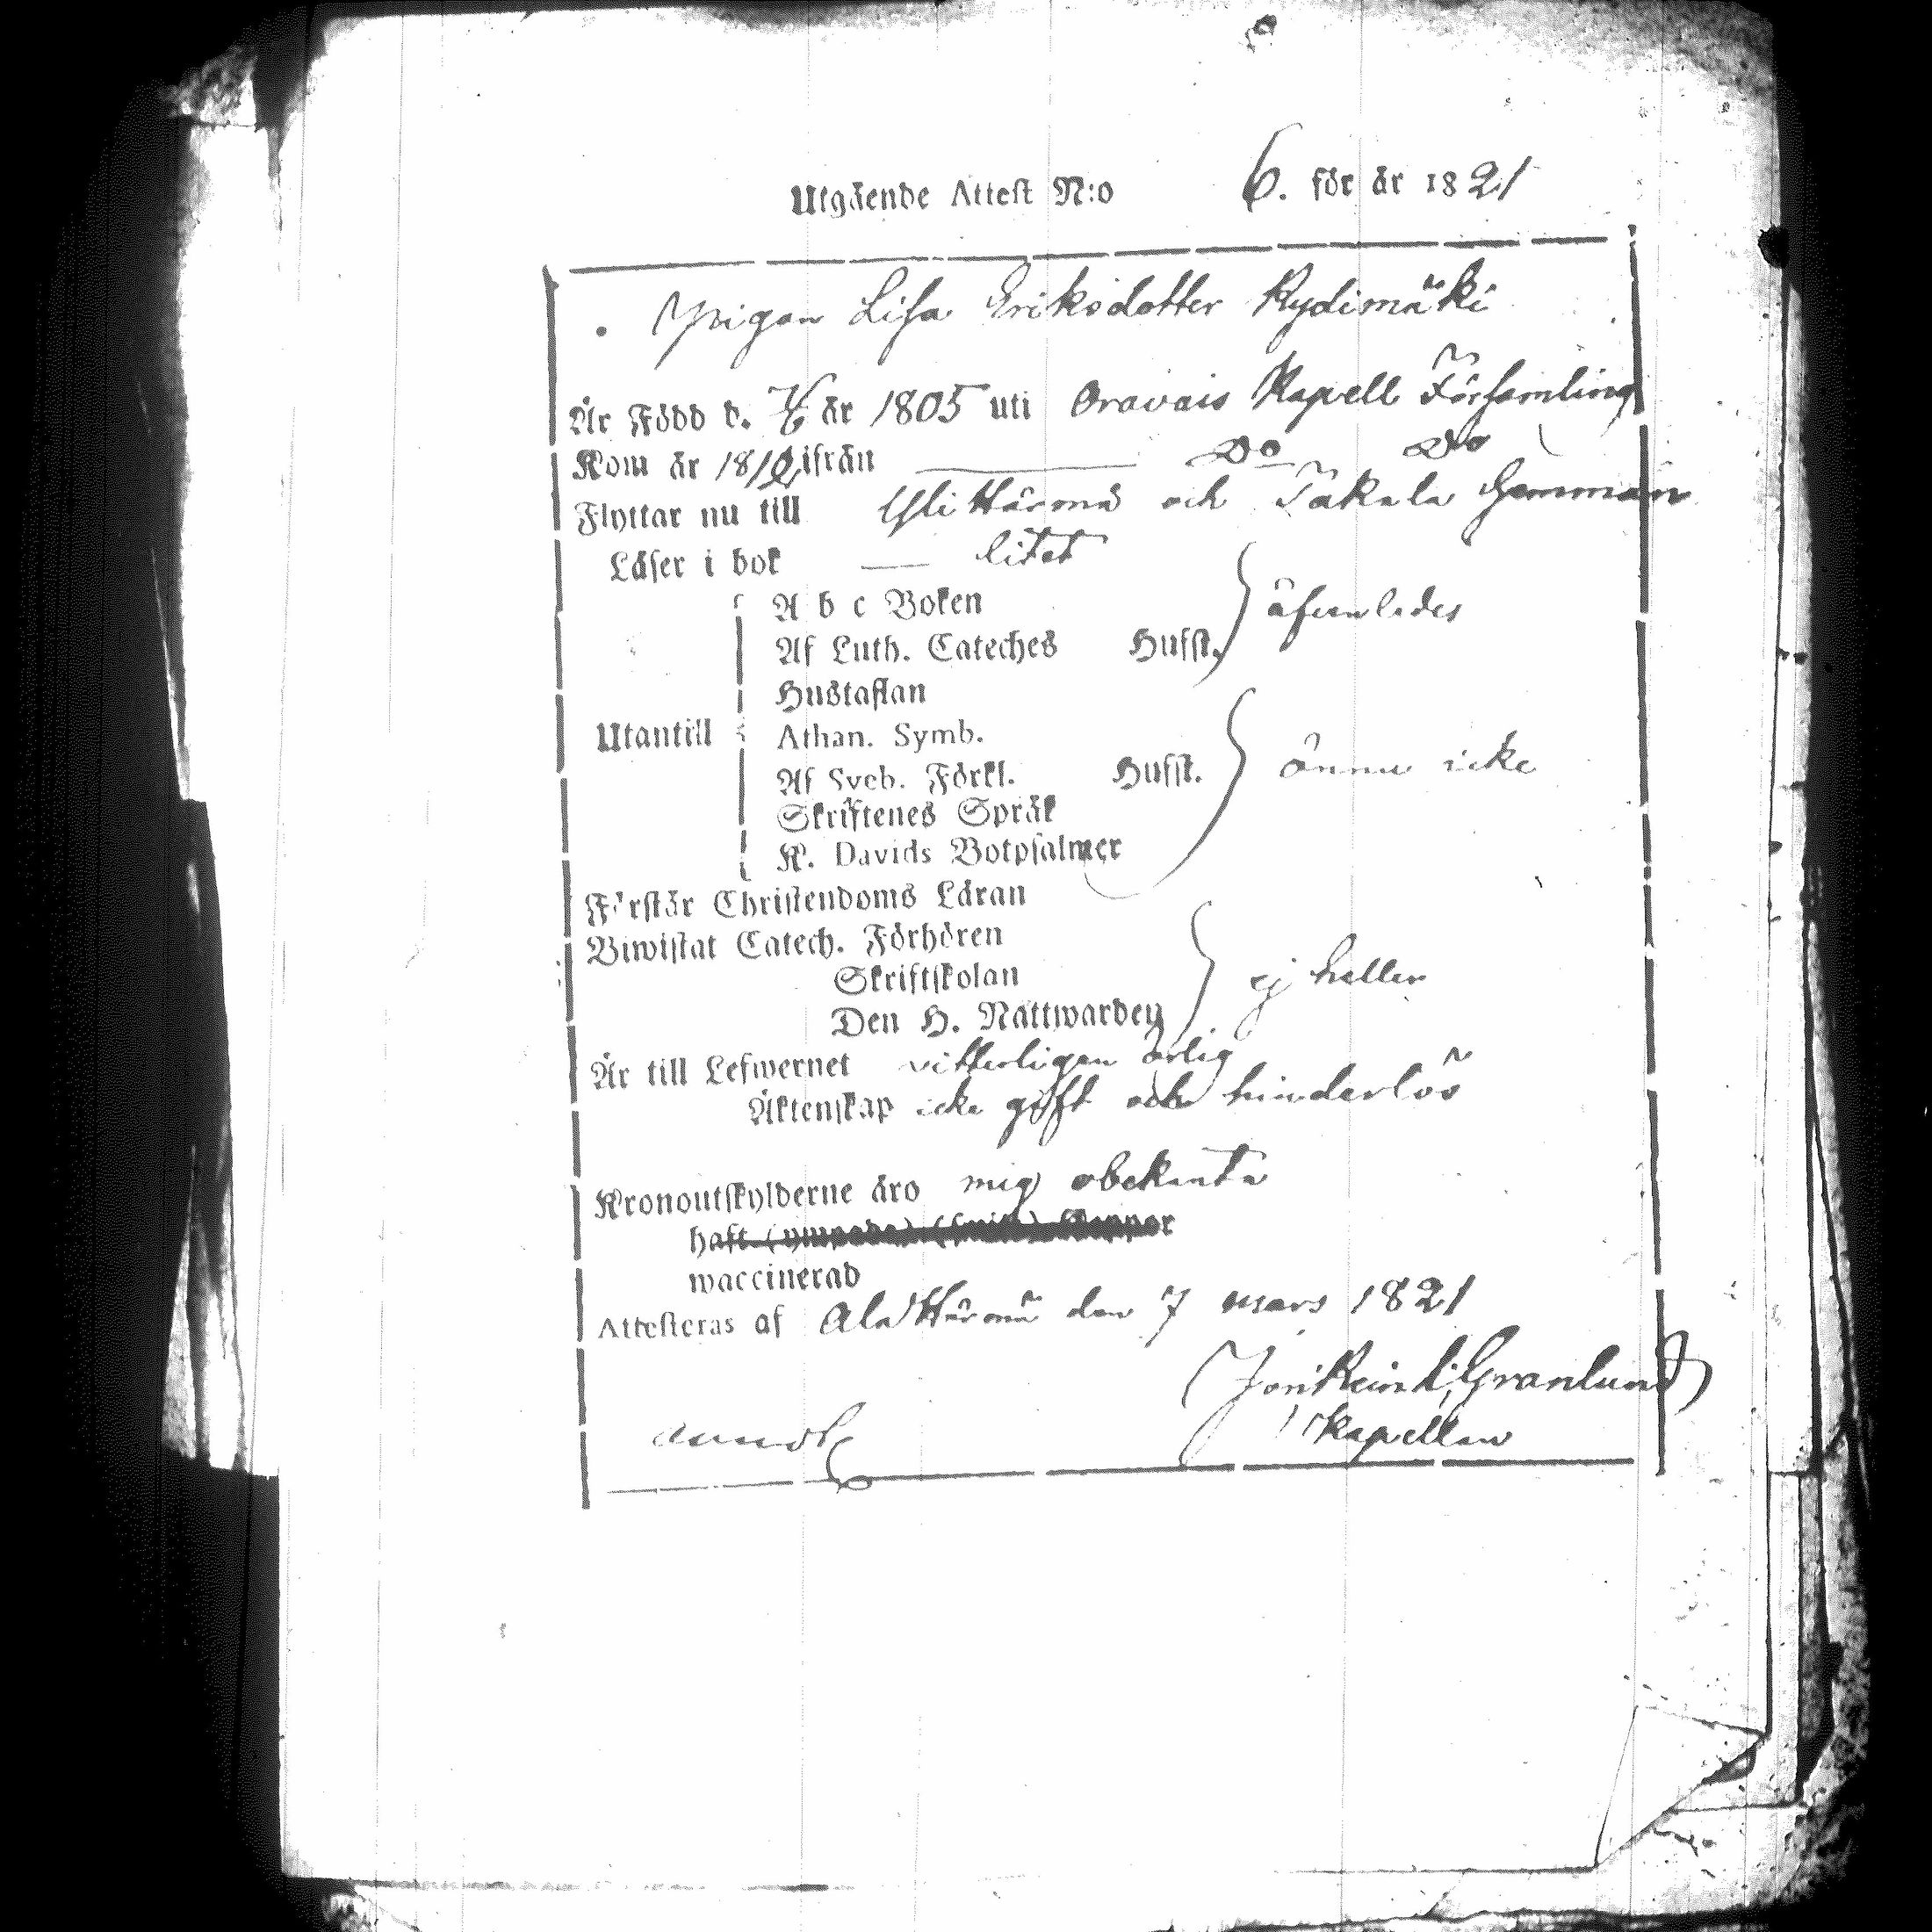 Utgående Attest N:o 6. för år 1821
Pigan Lisa Eriksdotter Rydimäki
Är Född d. år 1805 uti Oravais Kapell Församling
Kom år 18 ifrån Do Do
Flyttar nu till Yli Härmä och Takala Hemman
Läser i bok litet
A b c Boken
Af Luth. Cateches Hufst. äfvenledes
Hustaflan
Utantill Athan. Symb.
Af Sveb. Förkl. Hufst. ännu icke
Skriftenes Språk
K. Davids Botpsalmer
Förstår Christendoms Läran
Biwistat Catech. Förhören
Skriftskolan ej heller
Den H. Nattwarden
Är till Lefwernet vitterligen ärlig
Äktenskap icke gift och hinderlös
Kronoutskylderne äro mig obekanta
haft (ympade) Koppor
waccinerad
Attesteras af Ala Härmä den 7 Mars 1821
Granlund
Kapellan